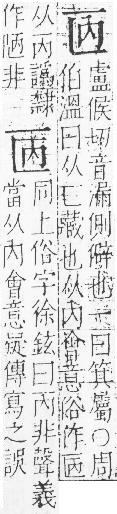 㔷盧候切音漏側僻也一曰箕屬○周
伯溫曰从匸藏也从內會意俗作㔷
从丙譌隸
作陋非匧同上俗字徐鉉曰丙非聲義
當从內會意疑傳寫之誤